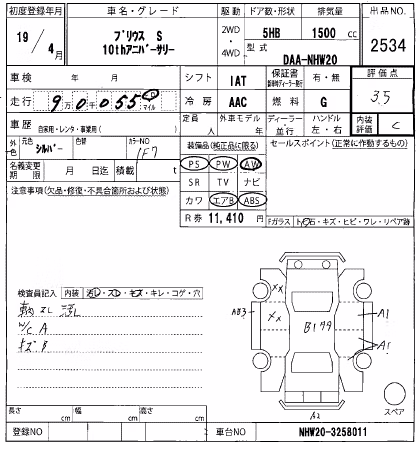 初度登録年月 車名・グレード 駆動 ドア数・形状 排気量 出品NO.
19年 4月 プリウス S 10thアニバーサリー 2WD・4WD 5HB 1500cc 2534
型式 DAA-NHW20
車検 年 月 シフト IAT 保証書 有・無 評価点
走行 9万0千055 マイル 冷房 AAC 燃料 G 3.5
車歴 自家用・レンタ・事業用( ) 定員 人 外車モデル 年 ディーラー・並行 ハンドル 左・右 内装評価 C
外色 元色 シルバー 色替 カラーNO 1F7
装備品(純正品に限る) セールスポイント(正常に動作するもの)
名義変更期限 月 日迄 積載 t
PS PW AW
注意事項(欠品・修復・不具合箇所および状態)
SR TV ナビ
カワ エアB ABS
R券 11,410
Fガラス ト石・キズ・ヒビ・ワレ・リペア跡
検査員記入 内装 汚レ・スレ・キズ・キレ・コゲ・穴
スレ 汚レ
W/C A
キズ B
XX
XX
AB3
A1
A1
スペア
長さ cm 幅 cm 高さ cm
登録NO 車台NO NHW20-3258011